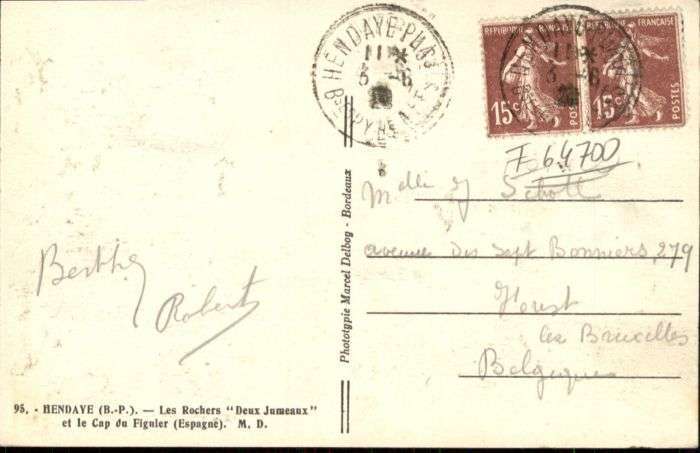 HENDAYE-PLAGE
11 *
5 - 6
RÉPUBLIQUE FRANÇAISE
15c POSTES
15c POSTES
F 64700
Melle J Scholl
avenue des Sept Bonniers, 279
Forest
les Bruxelles
Belgique
Berthe
Robert
Phototypie Marcel Delboy - Bordeaux
95. - HENDAYE (B.-P.). — Les Rochers "Deux Jumeaux"
et le Cap du Figuier (Espagne). M. D.